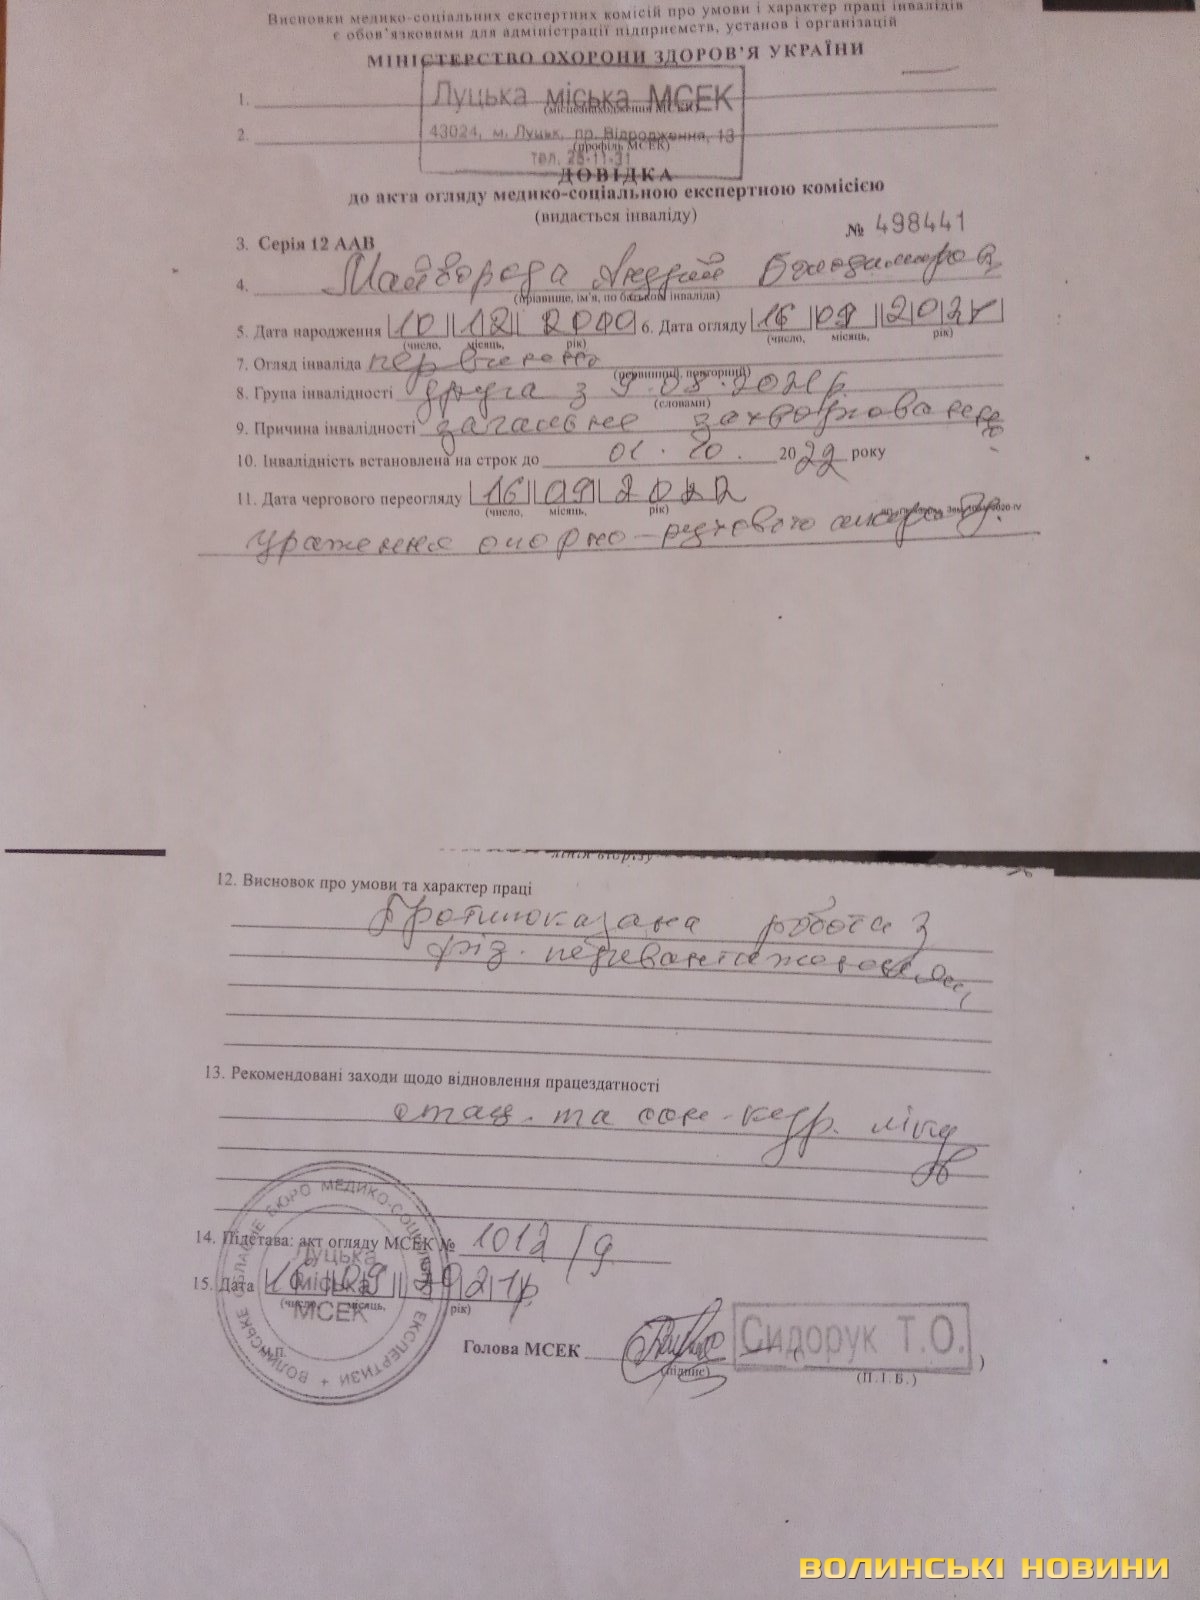 Висновки медико-соціальних експертних комісій про умови і характер праці інвалідів
є обов'язковими для адміністрації підприємств, установ і організацій
МІНІСТЕРСТВО ОХОРОНИ ЗДОРОВ'Я УКРАЇНИ
1. Луцька міська МСЕК
(місцезнаходження МСЕК)
2. 43024, м. Луцьк, пр. Відродження, 13
(профіль МСЕК)
тел. 25-11-31
ДОВІДКА
до акта огляду медико-соціальною експертною комісією
(видається інваліду)
3. Серія 12 ААВ № 498441
4. Майборода Андрій
(прізвище, ім'я, по батькові інваліда)
5. Дата народження 10 12 6. Дата огляду 16 09 2021
(число, місяць, рік) (число, місяць, рік)
7. Огляд інваліда первинно
(первинний, повторний)
8. Група інвалідності друга з 9.08.2021р
(словами)
9. Причина інвалідності загальне захворювання
10. Інвалідність встановлена на строк до 01.10. 2022 року
11. Дата чергового переогляду 16 09 2022
(число, місяць, рік)
ураження опорно-рухового апарату
лінія відрізу
12. Висновок про умови та характер праці
Протипоказана робота з
фіз. перевантаженнями
13. Рекомендовані заходи щодо відновлення працездатності
стац. та сан-кур.
14. Підстава: акт огляду МСЕК № 1012/9
15. Дата 16 09 2021р
(число, місяць, рік)
ВОЛИНСЬКЕ ОБЛАСНЕ БЮРО МЕДИКО-СОЦІАЛЬНОЇ ЕКСПЕРТИЗИ
Луцька
міська
МСЕК
М.П.
Голова МСЕК Сидорук Т.О. )
(підпис) (П.І.Б.)
ВОЛИНСЬКІ НОВИНИ